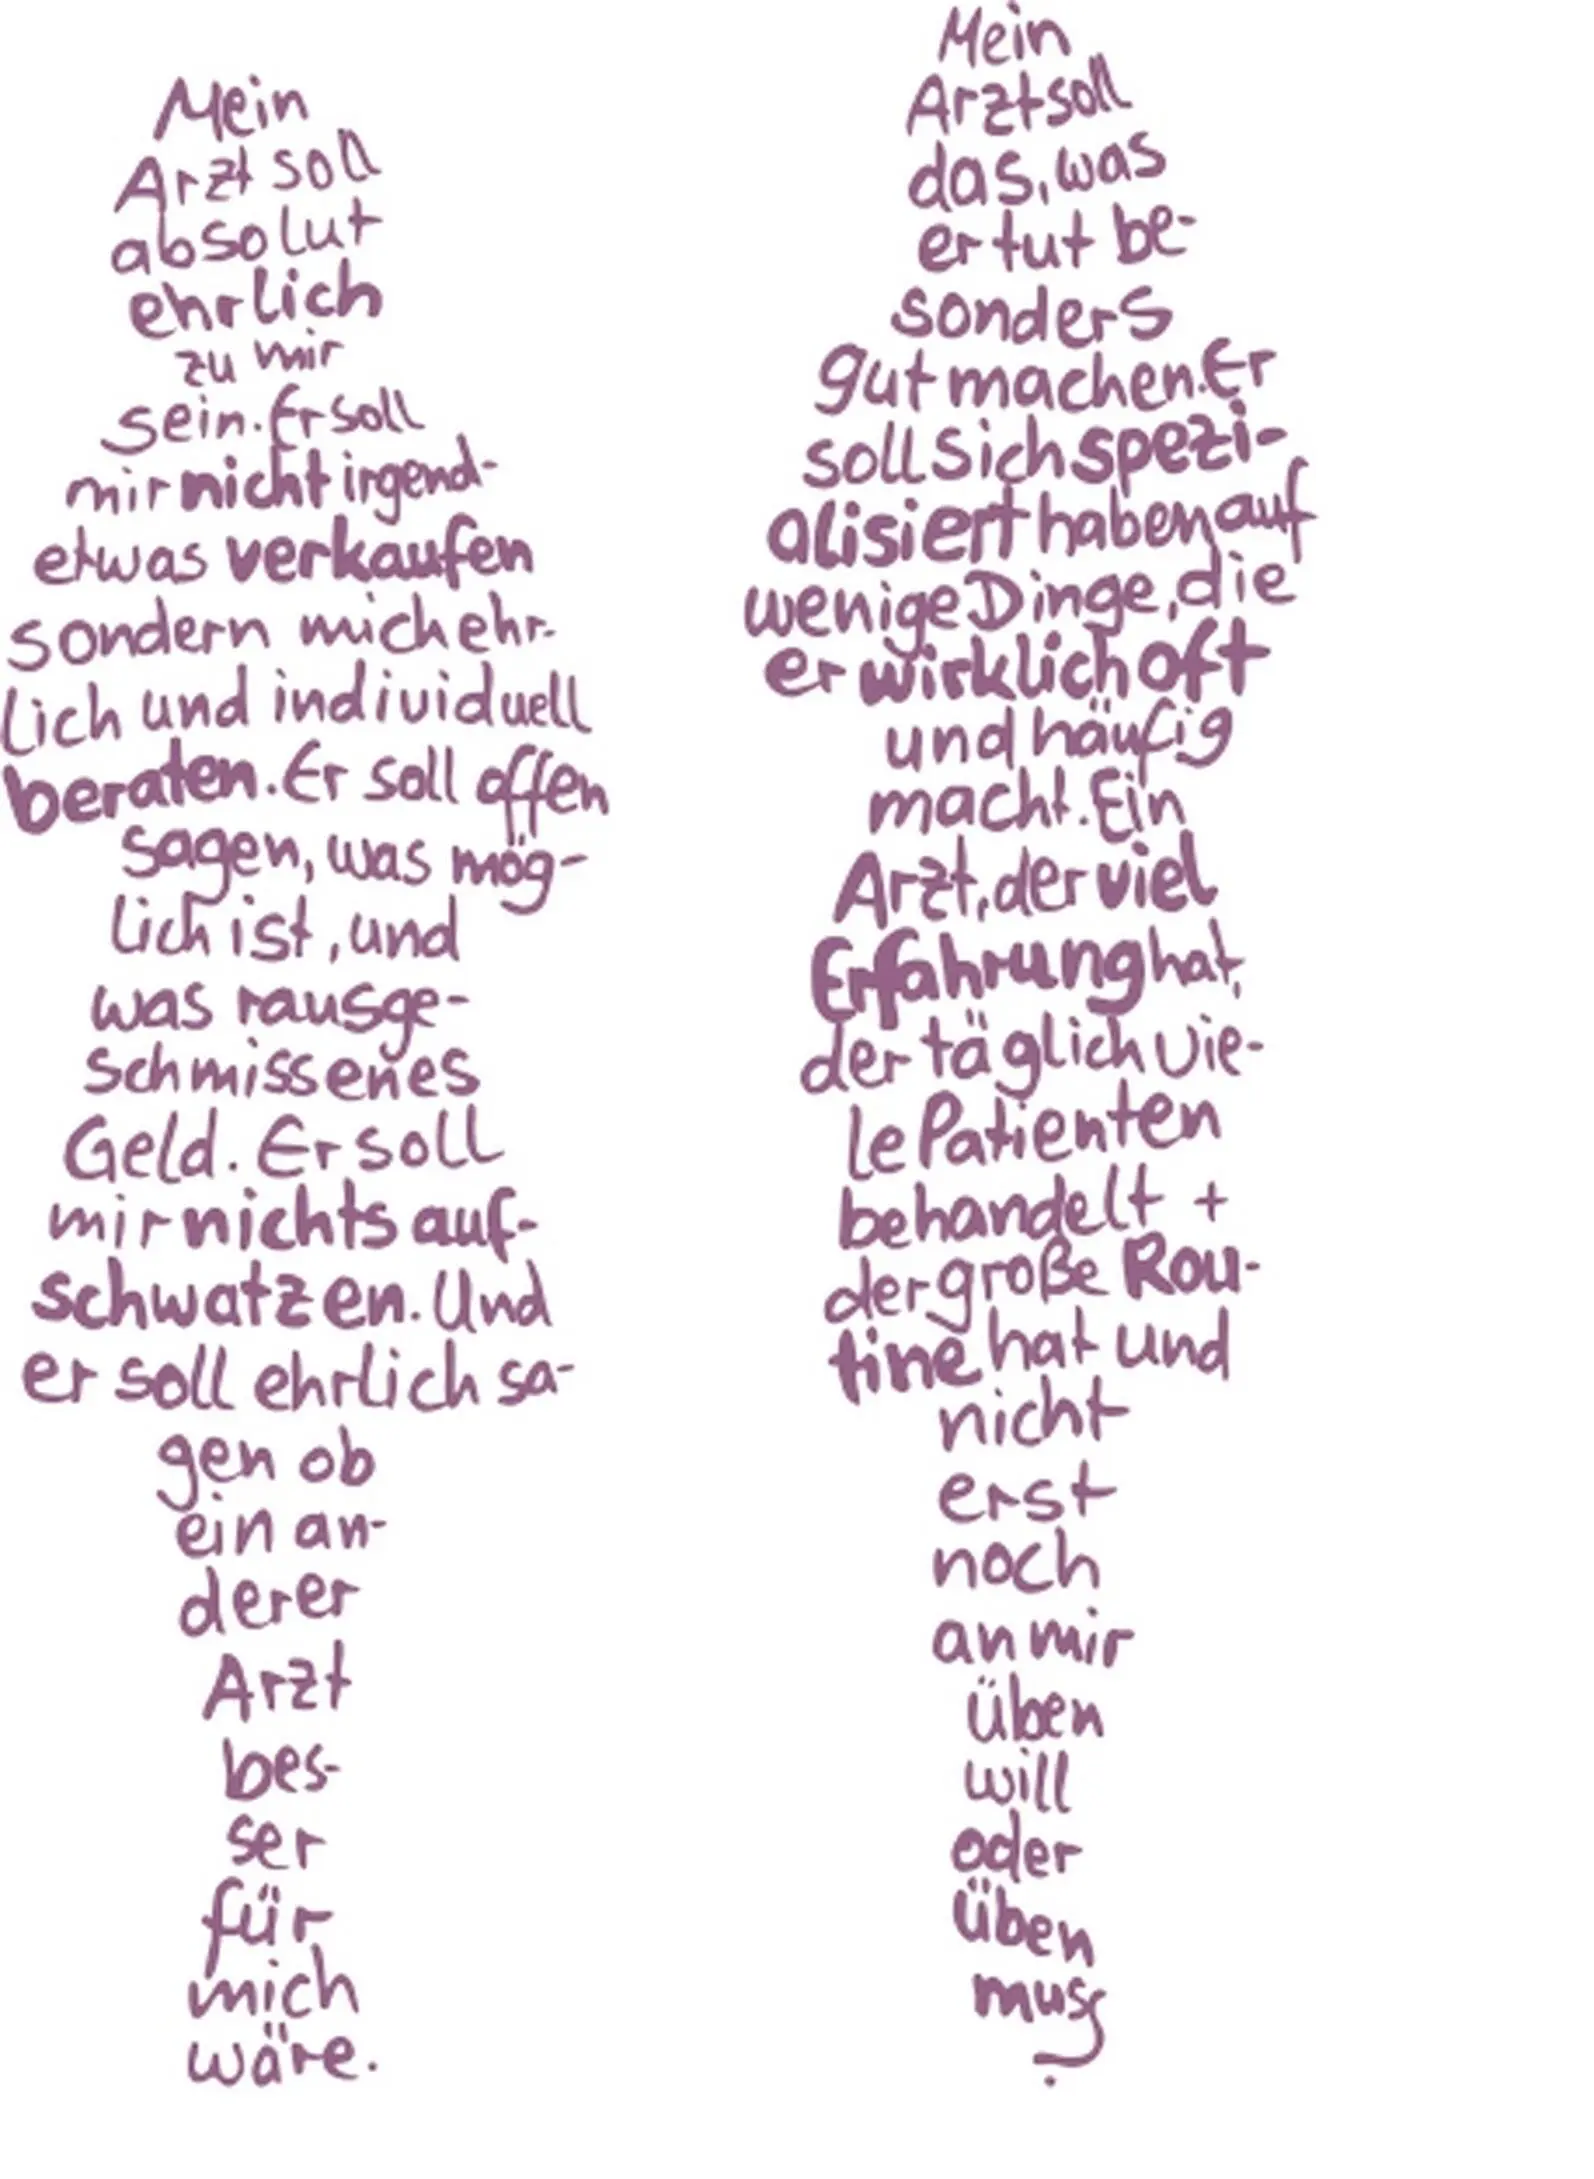 Mein
Arzt soll
absolut
ehrlich
zu mir
sein. Er soll
mir nicht irgend-
etwas verkaufen
sondern mich ehr-
lich und individuell
beraten. Er soll offen
sagen, was mög-
lich ist, und
was rausge-
schmissenes
Geld. Er soll
mir nichts auf-
schwatzen. Und
er soll ehrlich sa-
gen ob
ein an-
derer
Arzt
bes-
ser
für
mich
wäre.
Mein
Arzt soll
das, was
er tut be-
sonders
gut machen. Er
soll sich spezi-
alisiert haben auf
wenige Dinge, die
er wirklich oft
und häufig
macht. Ein
Arzt, der viel
Erfahrung hat,
der täglich vie-
le Patienten
behandelt +
der große Rou-
tine hat und
nicht
erst
noch
an mir
üben
will
oder
üben
muss
.